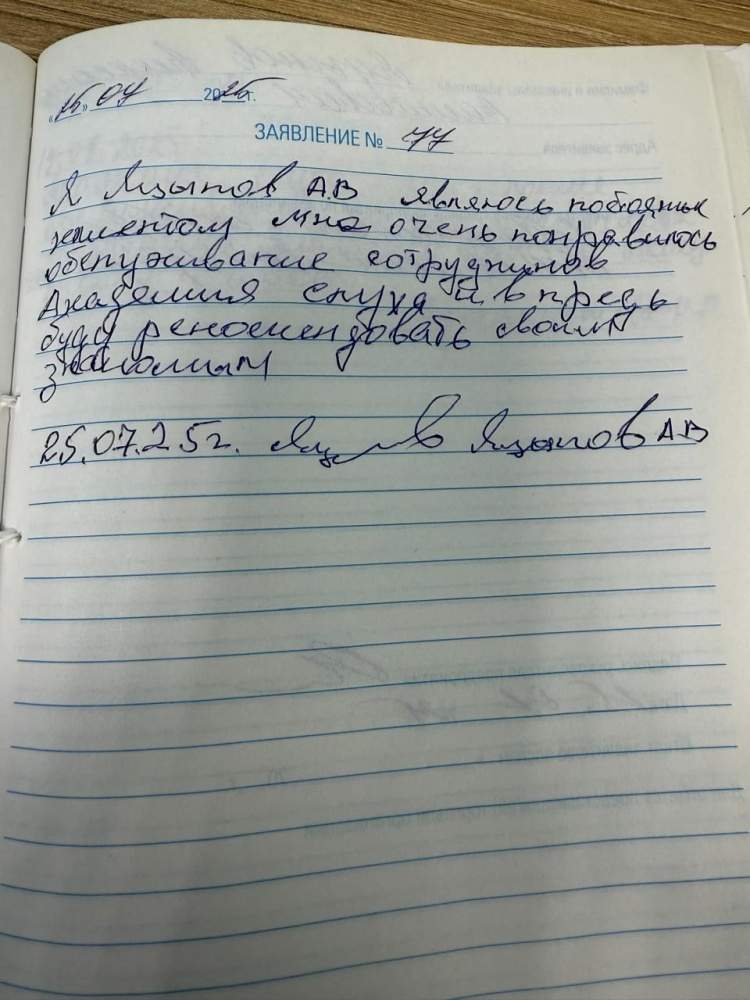 «15» 07 2025 г.
ЗАЯВЛЕНИЕ № 77
Я Яцыпов А.В являюсь
клиентом мне очень понравилось
обслуживание сотрудников
Академия слуха и впредь
буду рекомендовать своим
знакомым
25.07.25г. Яцыпов А.В